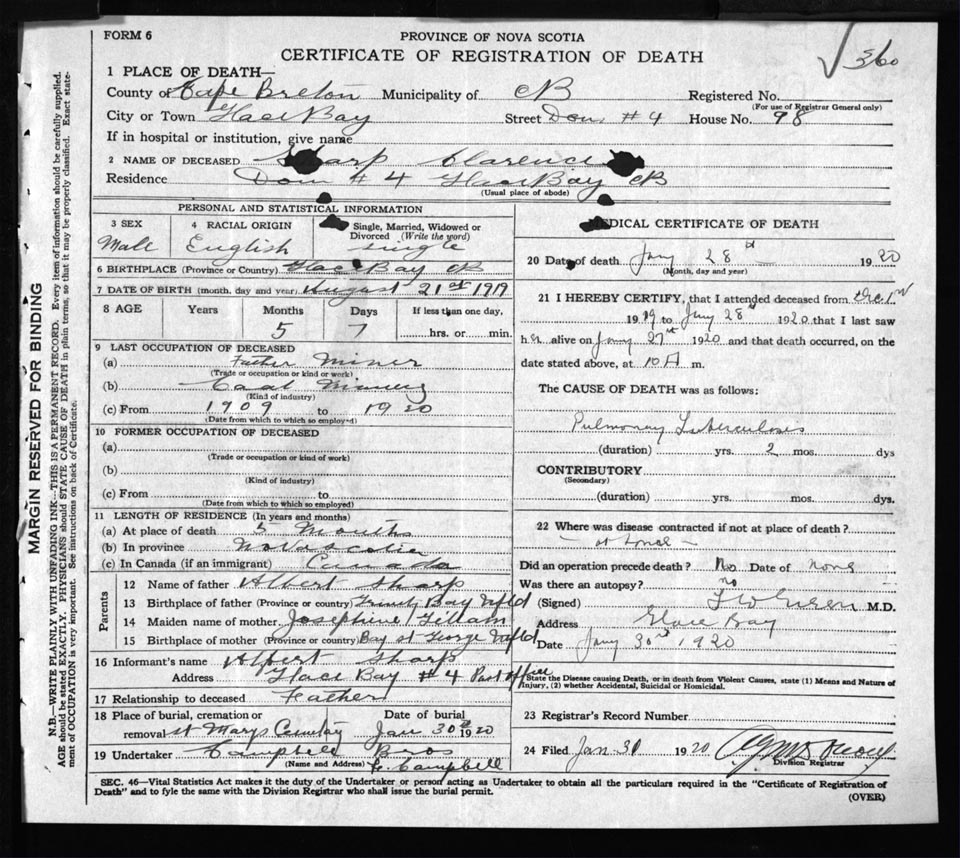 FORM 6
PROVINCE OF NOVA SCOTIA
CERTIFICATE OF REGISTRATION OF DEATH
360
MARGIN RESERVED FOR BINDING
N.B.—WRITE PLAINLY WITH UNFADING INK—THIS IS A PERMANENT RECORD. Every item of information should be carefully supplied.
AGE should be stated EXACTLY. PHYSICIANS should STATE CAUSE OF DEATH in plain terms, so that it may be properly classified. Exact state-
ment of OCCUPATION is very important. See instructions on back of Certificate.
1 PLACE OF DEATH—
County of Cape Breton Municipality of CB Registered No.
(For use of Registrar General only)
City or Town Glace Bay Street Dom #4 House No. 98
If in hospital or institution, give name
2 NAME OF DECEASED Sharp Clarence
Residence Dom #4 Glace Bay CB
(Usual place of abode)
PERSONAL AND STATISTICAL INFORMATION
3 SEX Male
4 RACIAL ORIGIN English
Single, Married, Widowed or Divorced (Write the word) single
6 BIRTHPLACE (Province or Country) Glace Bay CB
7 DATE OF BIRTH (month, day and year) August 21st 1919
8 AGE Years Months Days If less than one day,
5 7 hrs. or min.
9 LAST OCCUPATION OF DECEASED
(a) Father Miner
(Trade or occupation or kind of work)
(b) Coal Mining
(Kind of industry)
(c) From 1909 to 1920
(Date from which to which so employed)
10 FORMER OCCUPATION OF DECEASED
(a)
(Trade or occupation or kind of work)
(b)
(Kind of industry)
(c) From to
(Date from which to which so employed)
11 LENGTH OF RESIDENCE (In years and months)
(a) At place of death 5 Months
(b) In province Nova Scotia
(c) In Canada (if an immigrant) Canada
Parents
12 Name of father Albert Sharp
13 Birthplace of father (Province or country) Trinity Bay Nfld
14 Maiden name of mother Josephine
15 Birthplace of mother (Province or country) Bay St George Nfld
16 Informant's name Albert Sharp
Address Glace Bay #4 Post office
17 Relationship to deceased Father
18 Place of burial, cremation or Date of burial
removal St Marys Cemetary Jan 30th 1920
19 Undertaker Campbell Bros
(Name and Address) Campbell
MEDICAL CERTIFICATE OF DEATH
20 Date of death Jany 28 1920
(Month, day and year)
21 I HEREBY CERTIFY, that I attended deceased from Dec 1st
1919 to Jany 28 1920 that I last saw
alive on Jany 27 1920 and that death occurred, on the
date stated above, at 10 A m.
The CAUSE OF DEATH was as follows:
Pulmonary Tuberculosis
(duration) yrs. 2 mos. dys
CONTRIBUTORY
(Secondary)
(duration) yrs. mos. dys.
22 Where was disease contracted if not at place of death?
Did an operation precede death? No Date of none
Was there an autopsy? no
(Signed) M.D.
Address Glace Bay
Date Jany 30 1920
State the Disease causing Death, or in death from Violent Causes, state (1) Means and Nature of
Injury, (2) whether Accidental, Suicidal or Homicidal.
23 Registrar's Record Number
24 Filed Jan 30 1920
Division Registrar
SEC. 46—Vital Statistics Act makes it the duty of the Undertaker or person acting as Undertaker to obtain all the particulars required in the "Certificate of Registration of
Death" and to fyle the same with the Division Registrar who shall issue the burial permit.
(OVER)